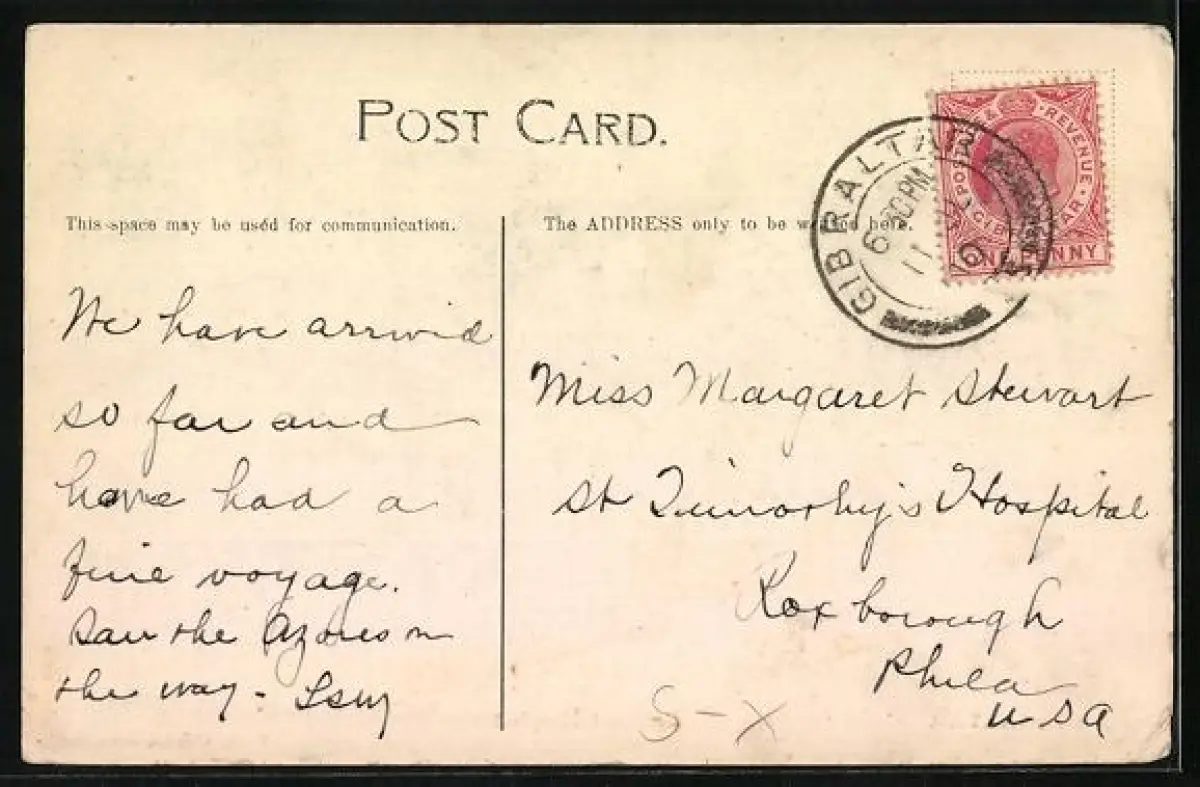 POST CARD.
This space may be used for communication.
The ADDRESS only to be written here.
GIBRALTAR
6.30 PM
11
10
POSTAGE & REVENUE
GIBRALTAR
ONE PENNY
We have arrived
so far and
have had a
fine voyage.
Saw the Azores on
the way -
Miss Margaret Stewart
St Timothy's Hospital
Roxborough
Phila
USA
S-X